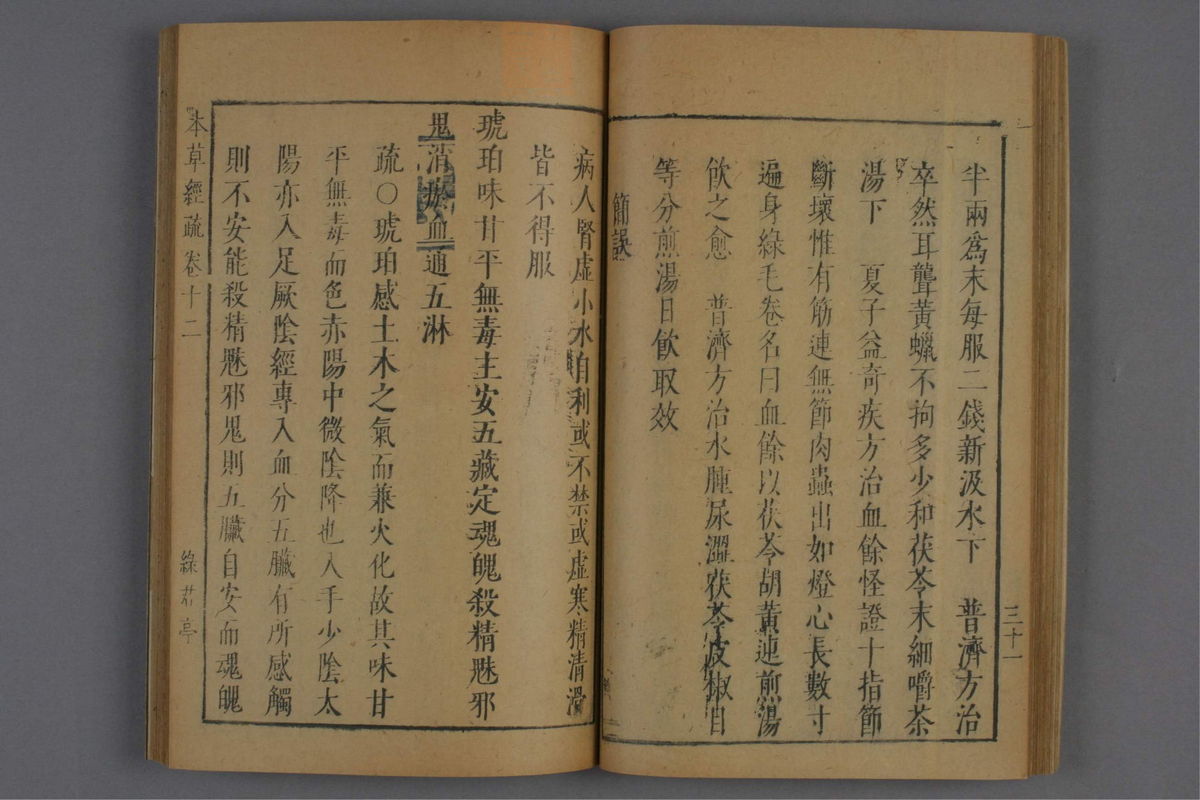 半兩爲末每服二錢新汲水下　普濟方治
卒然耳聾黃蠟不拘多少和茯苓末細嚼茶
湯下　夏子益奇疾方治血餘怪證十指節
斷壞惟有筋連無節肉蟲出如燈心長數寸
遍身綠毛卷名曰血餘以茯苓胡黃連煎湯
飲之愈　普濟方治水腫尿澀茯苓皮椒目
等分煎湯日飲取效
簡誤
三十一
病人腎虛小水自利或不禁或虛寒精清滑
皆不得服
琥珀味甘平無毒主安五藏定魂魄殺精魅邪
鬼消瘀血通五淋
疏〇琥珀感土木之氣而兼火化故其味甘
平無毒而色赤陽中微陰降也入手少陰太
陽亦入足厥陰經專入血分五臟有所感觸
則不安能殺精魅邪鬼則五臟自安而魂魄
本草經疏 卷十二
綠君亭